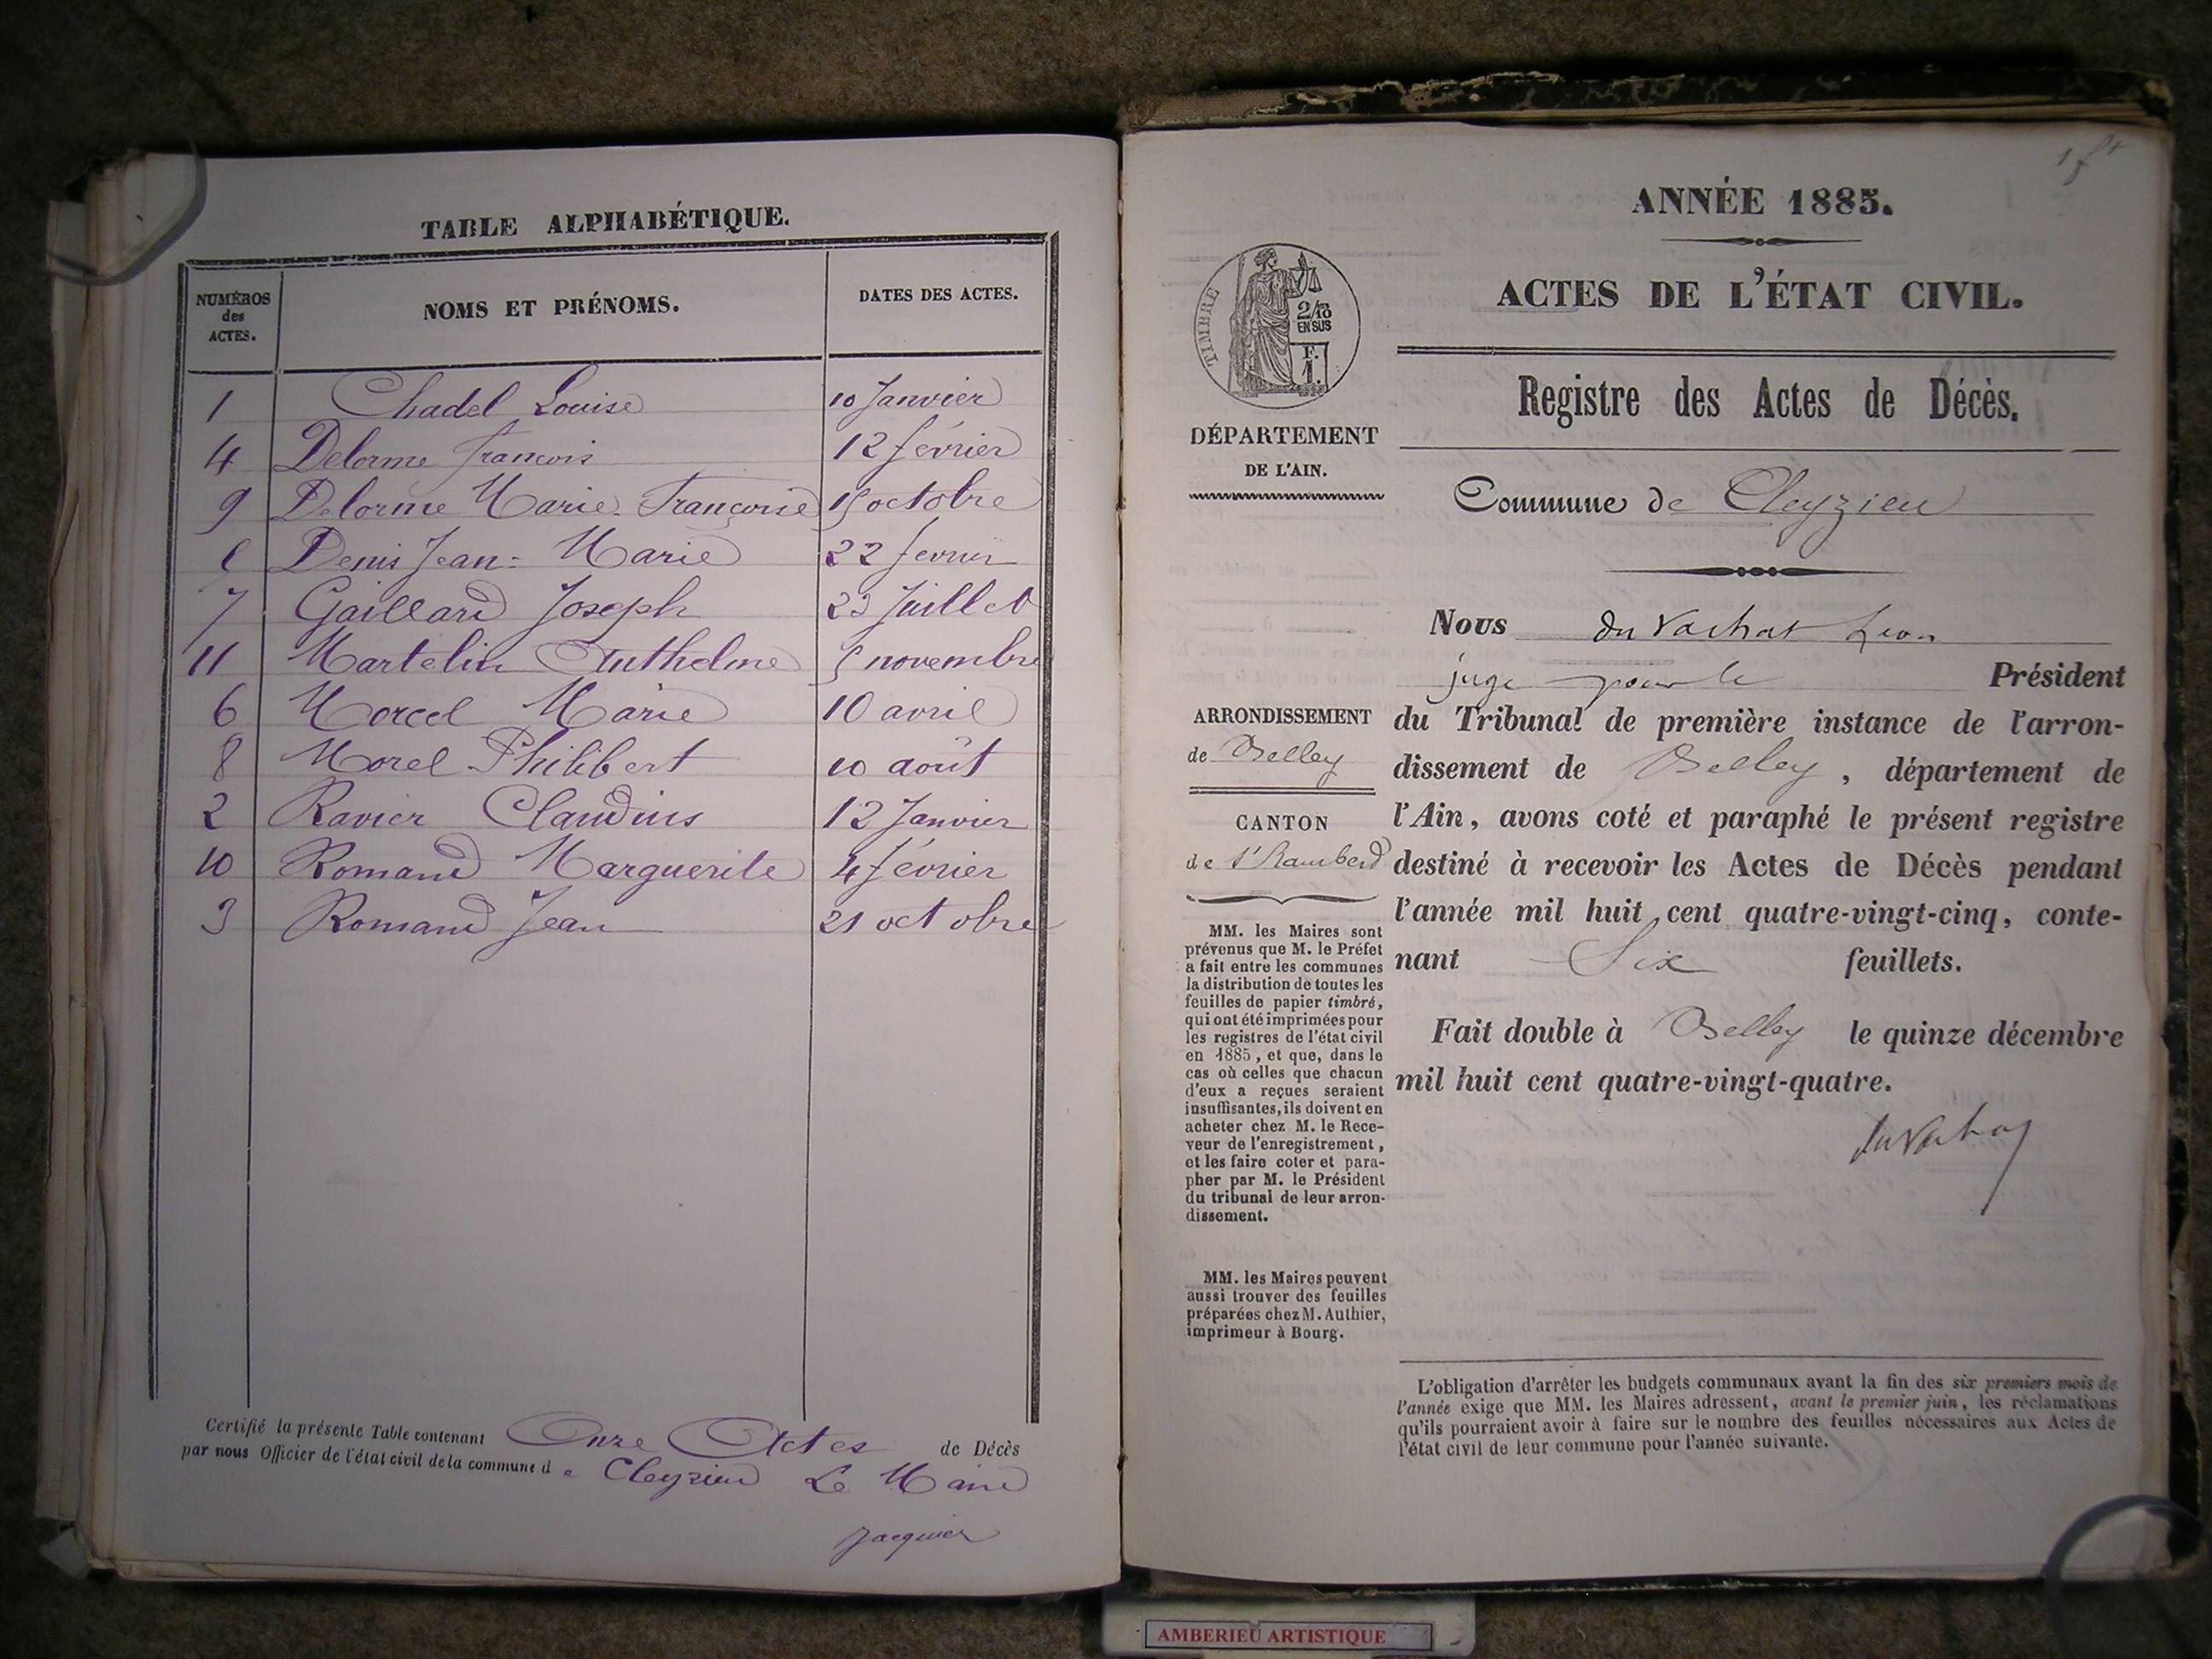 TABLE ALPHABÉTIQUE.
NUMÉROS des ACTES. NOMS ET PRÉNOMS. DATES DES ACTES.
1 Chadel Louise 10 Janvier
4 Delorme françois 12 février
9 Delorme Marie-Françoise 15 octobre
Denis Jean-Marie 22 fevrier
7 Gaillard Joseph 23 Juillet
11 Martelin Anthelme 5 novembre
6 Morcel Marie 10 avril
8 Morel Philibert 10 août
2 Ravier Claudius 12 Janvier
10 Romand Marguerite 4 février
3 Romand Jean 21 octobre
Certifié la présente Table contenant Onze Actes de Décès
par nous Officier de l'état civil de la commune de Cleyzieu Le Maire
Jacquier
ANNÉE 1885.
ACTES DE L'ÉTAT CIVIL.
Registre des Actes de Décès.
Commune de Cleyzieu
TIMBRE
2/10
EN SUS
F.
1.
DÉPARTEMENT
DE L'AIN.
ARRONDISSEMENT
de Belley
CANTON
de St Rambert
MM. les Maires sont
prévenus que M. le Préfet
a fait entre les communes
la distribution de toutes les
feuilles de papier timbré,
qui ont été imprimées pour
les registres de l'état civil
en 1885, et que, dans le
cas où celles que chacun
d'eux a reçues seraient
insuffisantes, ils doivent en
acheter chez M. le Rece-
veur de l'enregistrement,
et les faire coter et para-
pher par M. le Président
du tribunal de leur arron-
dissement.
MM. les Maires peuvent
aussi trouver des feuilles
préparées chez M. Authier,
imprimeur à Bourg.
Nous du Vachat Léon
juge pour le Président
du Tribunal de première instance de l'arron-
dissement de Belley, département de
l'Ain, avons coté et paraphé le présent registre
destiné à recevoir les Actes de Décès pendant
l'année mil huit cent quatre-vingt-cinq, conte-
nant Six feuillets.
Fait double à Belley le quinze décembre
mil huit cent quatre-vingt-quatre.
du Vachat
L'obligation d'arrêter les budgets communaux avant la fin des six premiers mois de
l'année exige que MM. les Maires adressent, avant le premier juin, les réclamations
qu'ils pourraient avoir à faire sur le nombre des feuilles nécessaires aux Actes de
l'état civil de leur commune pour l'année suivante.
AMBERIEU ARTISTIQUE